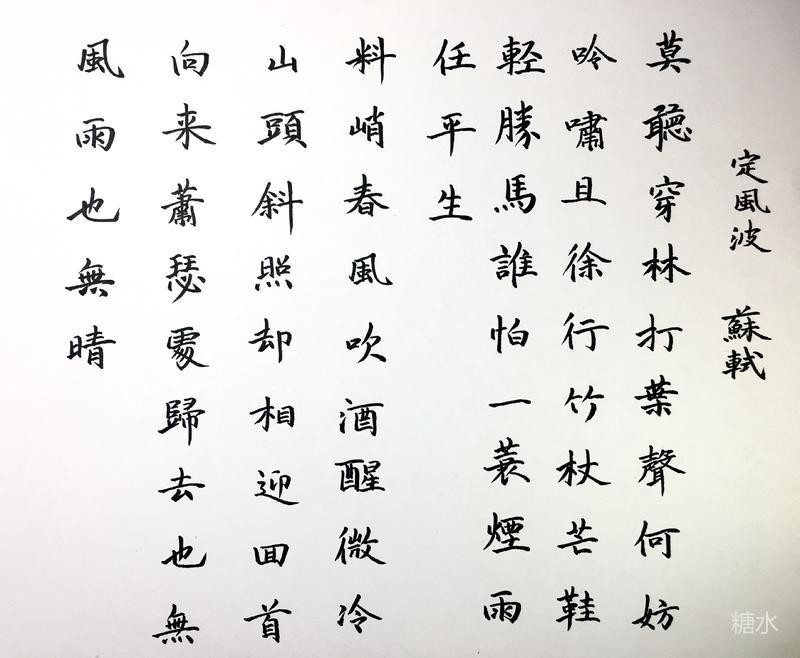 定風波 蘇軾
莫聽穿林打葉聲何妨
吟嘯且徐行竹杖芒鞋
輕勝馬誰怕一蓑煙雨
任平生
料峭春風吹酒醒微冷
山頭斜照却相迎回首
向来蕭瑟處歸去也無
風雨也無晴
糖水